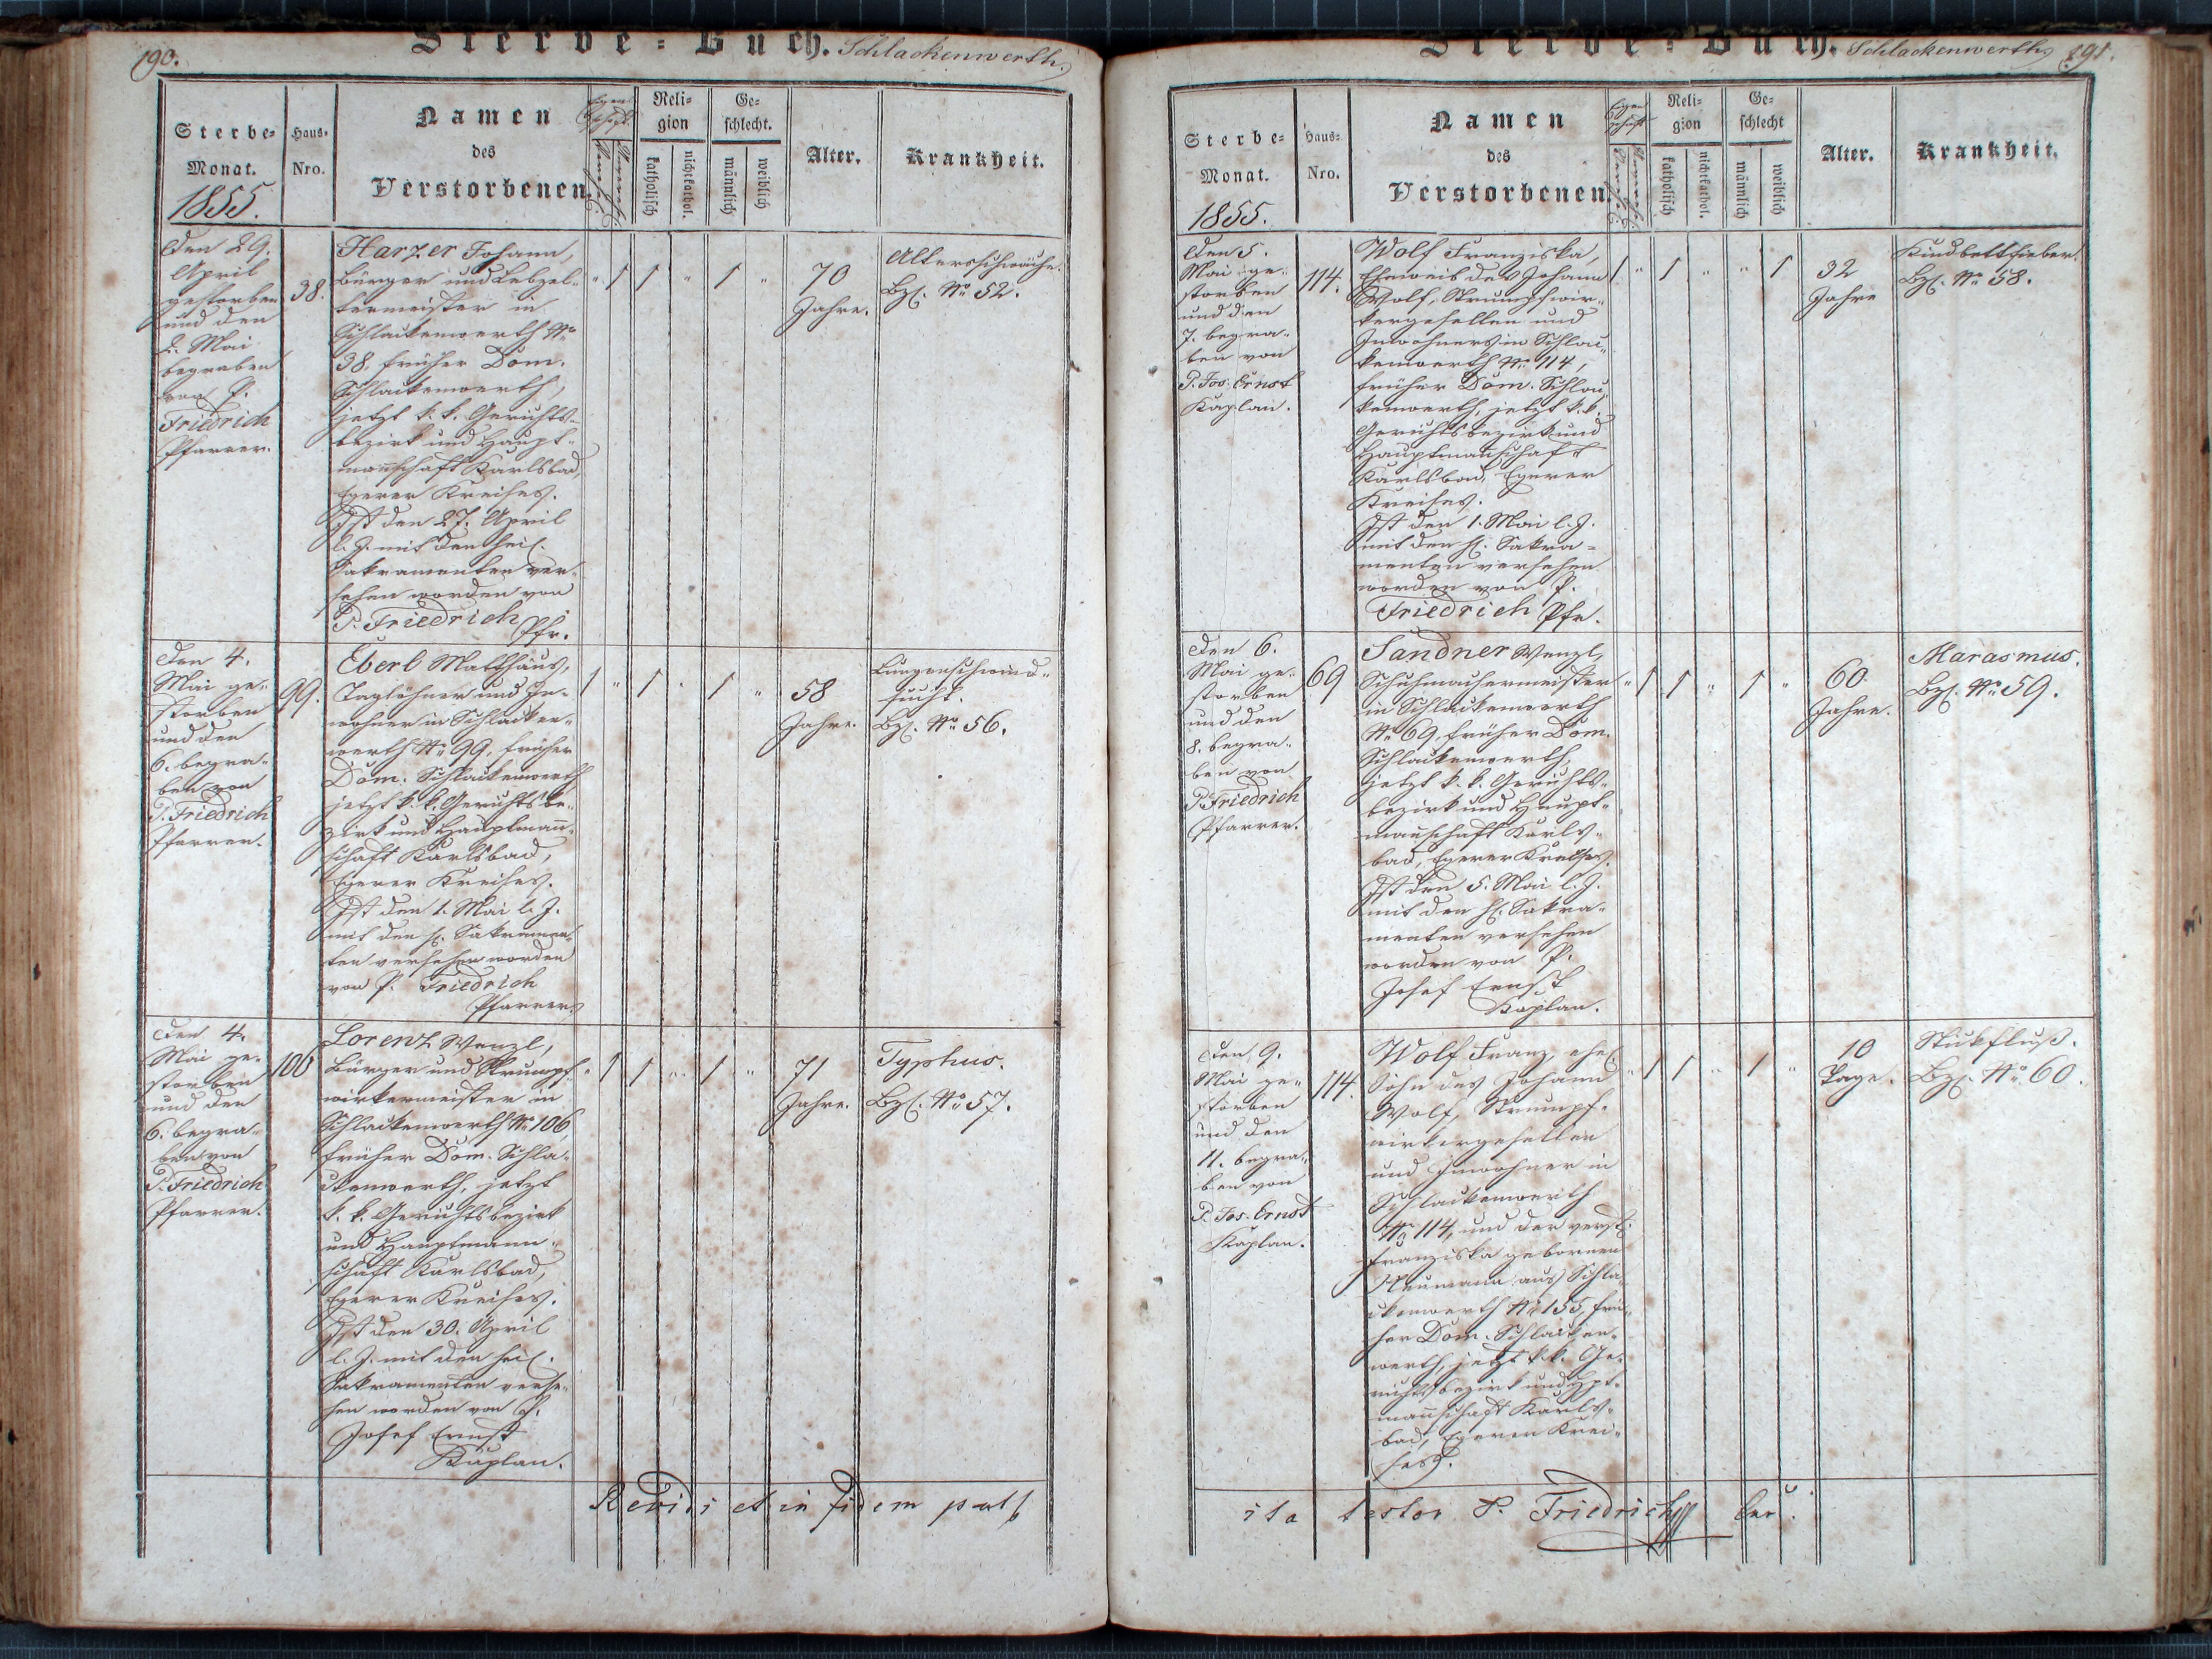 190.
Sterbe-Buch. Schlackenwerth.
Sterbe-
Monat.
1855.
Haus-
Nro.
Namen
des
Verstorbenen
Reli-
gion
katholisch
nichtkathol.
Ge-
schlecht.
männlich
weiblich
Alter.
Krankheit.
Den 29.
April
gestorben
und den
2. Mai
begraben
von P.
Friedrich
Pfarrer.
38.
Harzer Johann,
Bürger und Lebzel-
termeister in
Schlackenwerth No
38, früher Dom.
Schlackenwerth,
jetzt k. k. Gerichts-
bezirk und Haupt-
mannschaft Karlsbad,
Egerer Kreises.
Ist den 27. April
l. J. mit den heil.
Sakramenten ver-
sehen worden von
P. Friedrich
Pfr.
" 1 1 " 1 "
70
Jahre.
Altersschwäche.
Bzl. No 52.
Den 4.
Mai ge-
storben
und den
6. begra-
ben von
P. Friedrich
Pfarrer.
99.
Eberl Matthäus,
Taglöhner und In-
wohner in Schlacken-
werth No 99, früher
Dom. Schlackenwerth
jetzt k. k. Gerichtsbe-
zirk und Hauptmann-
schaft Karlsbad,
Egerer Kreises.
Ist den 1. Mai l. J.
mit den h. Sakramen-
ten versehen worden
von P. Friedrich
Pfarrer.
1 " 1 " 1 "
58
Jahre.
Lungenschwind-
sucht.
Bzl. No 56.
Den 4.
Mai ge-
storben
und den
6. begra-
ben von
P. Friedrich
Pfarrer.
Lorenz Wenzl,
Bürger und Strumpf-
wirkermeister in
Schlackenwerth No 106,
früher Dom. Schla-
ckenwerth, jetzt
k. k. Gerichtsbezirk
und Hauptmann-
schaft Karlsbad,
Egerer Kreises.
Ist den 30. April
l. J. mit den heil.
Sakramenten verse-
hen worden von P.
Josef Ernst
Kaplan.
" 1 1 " 1 "
71
Jahre.
Typhus.
Bzl. No 57.
Revidi et in fidem
Sterbe-Buch. Schlackenwerth 191.
Sterbe-
Monat.
1855.
Haus-
Nro.
Namen
des
Verstorbenen.
Reli-
gion
katholisch
nichtkathol.
Ge-
schlecht
männlich
weiblich
Alter.
Krankheit.
Den 5.
Mai ge-
storben
und den
7. begra-
ben von
P. Jos. Ernst
Kaplan.
114.
Wolf Franziska,
Eheweib des Johann
Wolf, Strumpfwir-
kergesellen und
Inwohners in Schlac-
kenwerth No 114,
früher Dom. Schlac-
kenwerth, jetzt k. k.
Gerichtsbezirk und
Hauptmannschaft
Karlsbad, Egerer
Kreises.
Ist den 1. Mai l. J.
mit den h. Sakra-
menten versehen
worden von P.
Friedrich Pfr.
1 " 1 " " 1
32
Jahre
Kindbettfieber.
Bzl. No 58.
Den 6.
Mai ge-
storben
und den
8. begra-
ben von
P. Friedrich
Pfarrer.
69
Sandner Wenzl,
Schuhmachermeister
in Schlackenwerth
No 69, früher Dom.
Schlackenwerth,
jetzt k. k. Gerichts-
bezirk und Haupt-
mannschaft Karls-
bad, Egerer Kreises.
Ist den 5. Mai l. J.
mit den h. Sakra-
menten versehen
worden von P.
Josef Ernst
Kaplan.
" 1 1 " 1 "
60
Jahre.
Marasmus.
Bzl. No 59.
Den 9.
Mai ge-
storben
und den
11. begra-
ben von
P. Jos. Ernst
Kaplan.
114.
Wolf Franz, ehel.
Sohn des Johann
Wolf, Strumpf-
wirkergesellen
und Inwohner in
Schlackenwerth
No 114, und der verst.
Franziska gebornen
Neumann aus Schla-
ckenwerth No 155, frü-
her Dom. Schlacken-
werth, jetzt k. k. Ge-
richtsbezirk und Hpt-
mannschaft Karls-
bad, Egerer Krei-
ses.
" 1 1 " 1 "
10
Tage.
Stickfluß.
Bzl. No 60.
ita testor P. Friedrich